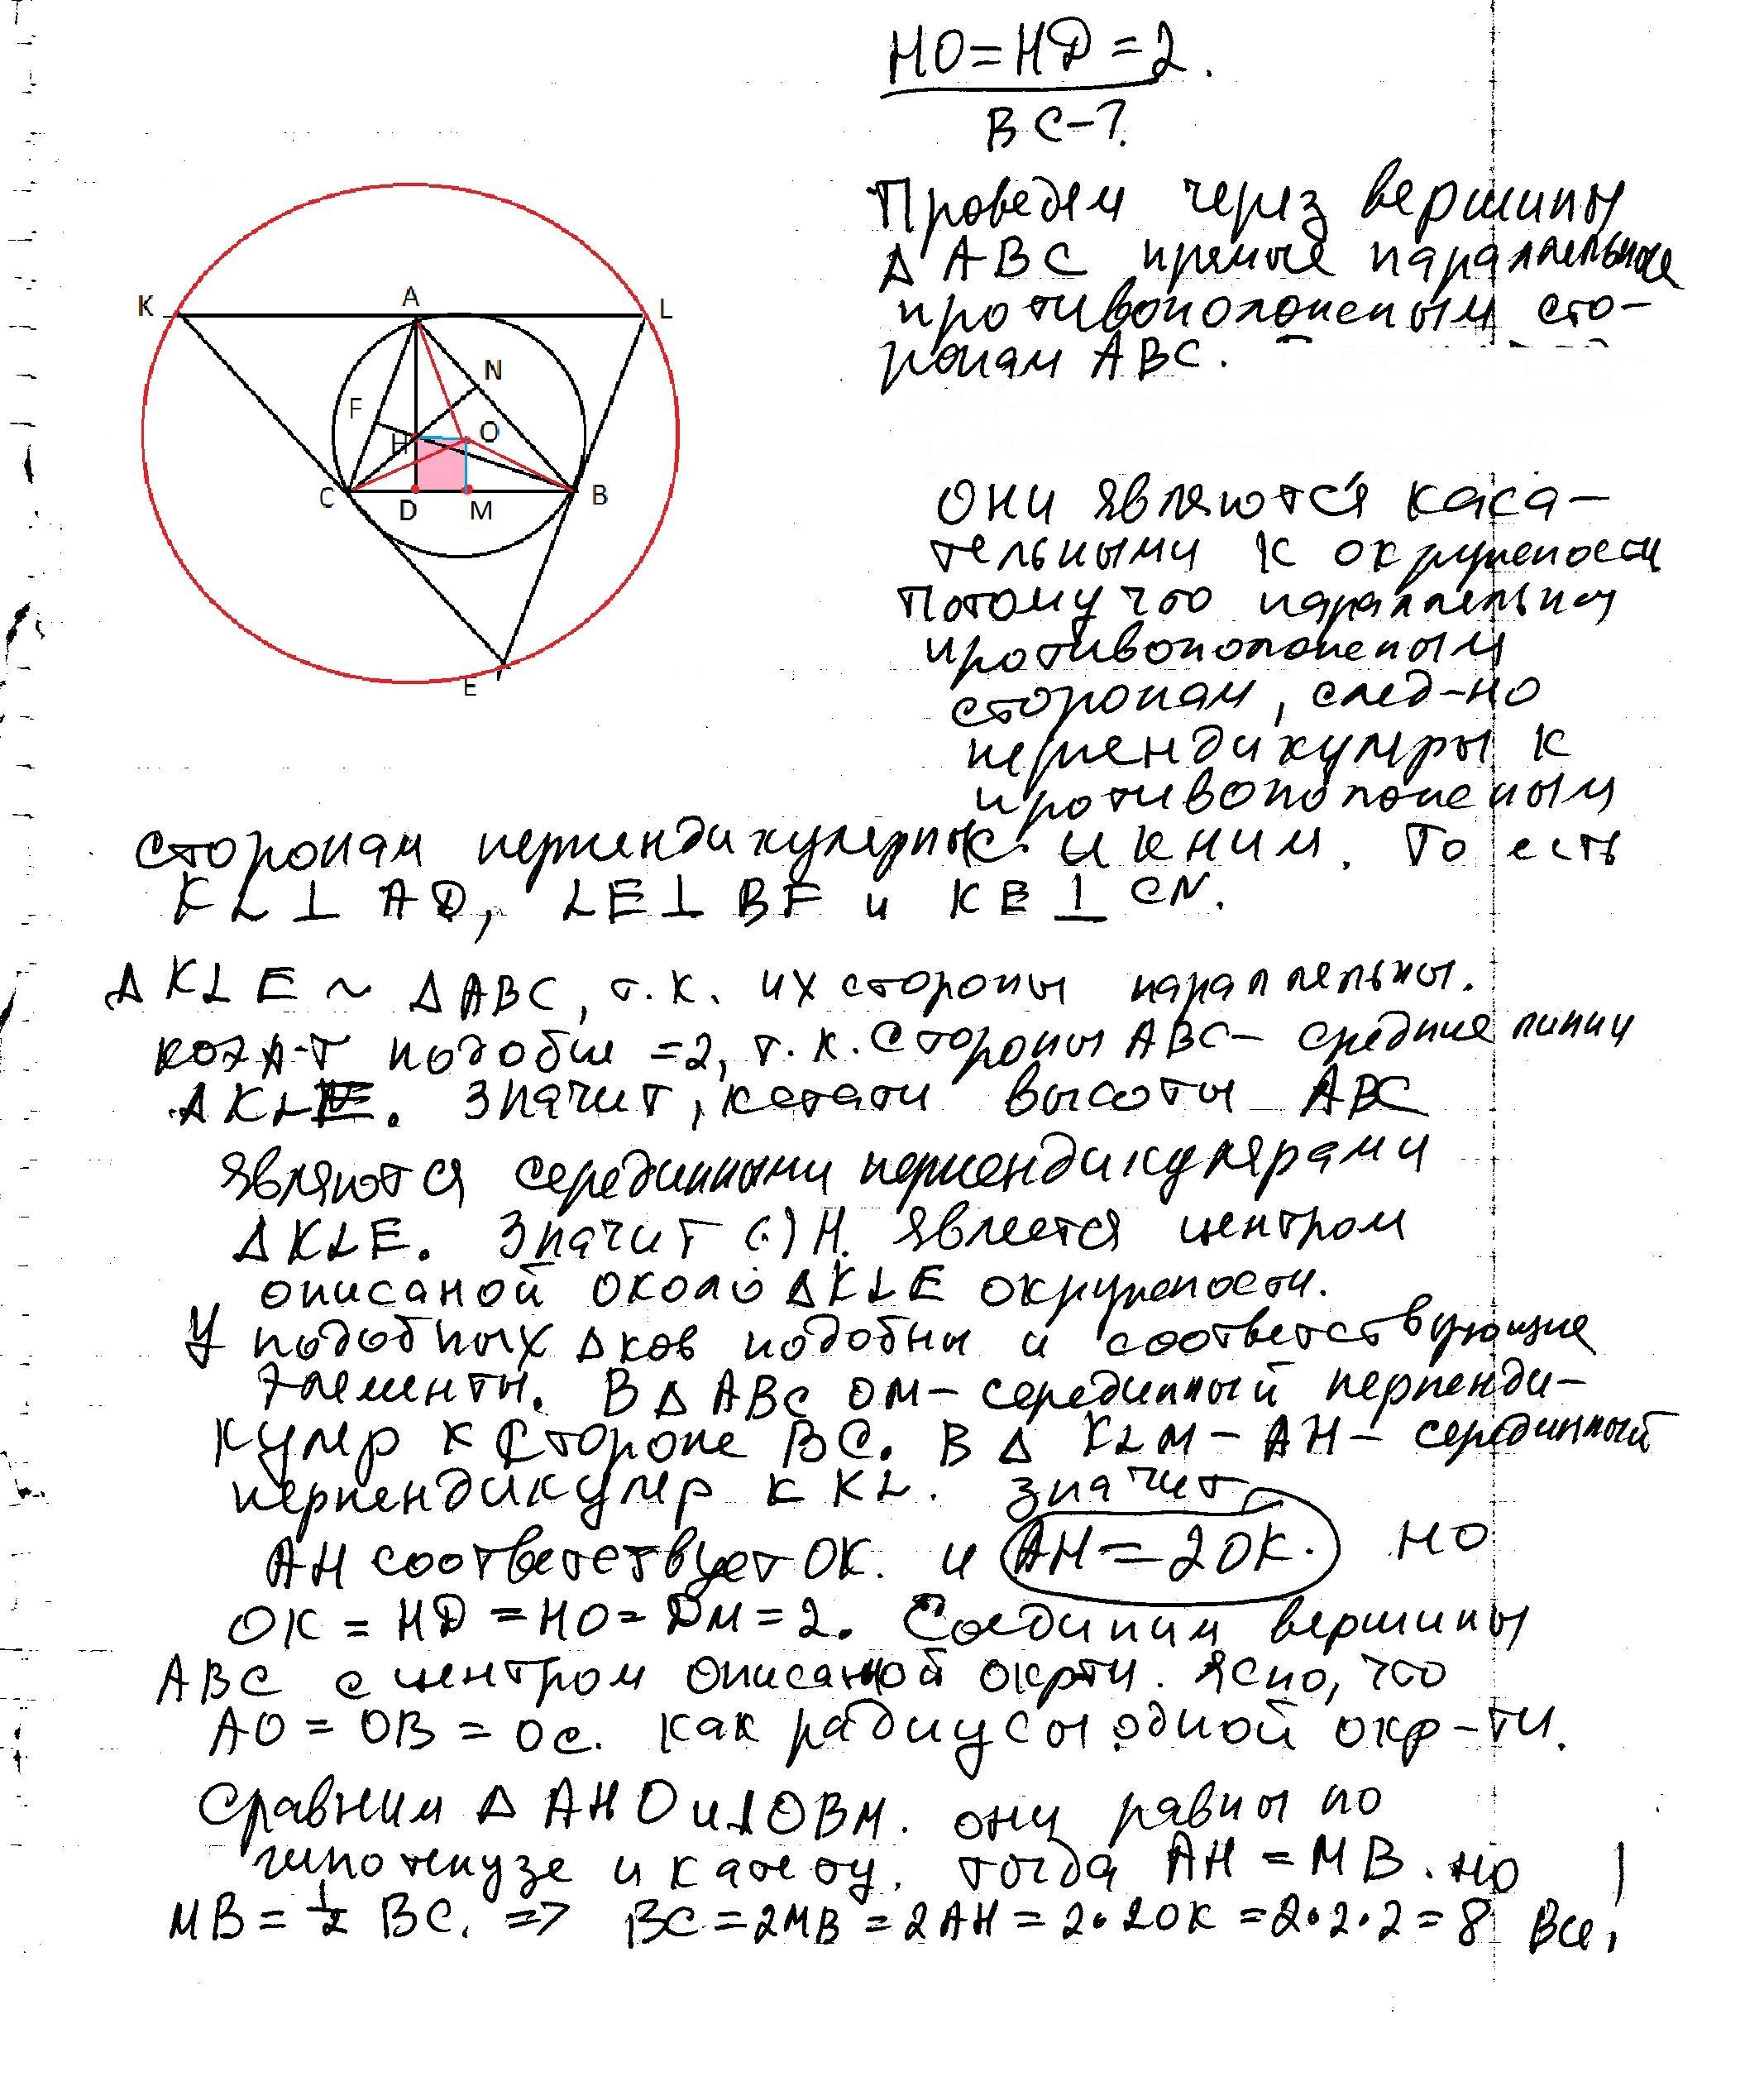 HO=HD=2.
BC-?
Проведем через вершины
Δ ABC прямые параллельные
противоположным сто-
ронам ABC.
K
A
L
N
F
H
O
C
D
M
B
E
Они являются каса-
тельными к окружности
потому что параллельны
противоположным
сторонам, след-но
перпендикуляры к
противоположным
сторонам перпендикулярны и к ним. То есть
KL⊥AD, LE⊥BF и KE⊥CN.
ΔKLE ~ ΔABC, т.к. их стороны параллельны.
коэл-т подобия =2, т.к. стороны ABC- средние линии
ΔKLE. Значит, кстати высоты ABC
являются серединными перпендикулярами
ΔKLE. Значит (·) H. явлеется центром
описаной около ΔKLE окружности.
У подобных Δков подобны и соответствующие
элементы. В Δ ABC OM- серединный перпенди-
куляр к стороне BC. В Δ KLM - AH - серединный
перпендикуляр к KL. Значит
AH соответствует OK. и AH=2OK. но
OK = HD = HO = DM = 2. Соединим вершины
ABC с центром описаной окрти. Ясно, что
AO = OB = OC. как радиусы одной окр-ти.
Сравним Δ AHO и Δ OBM. они равны по
гипотенузе и катету. тогда AH = MB. но
MB = ½ BC. => BC = 2MB = 2AH = 2·2OK = 2·2·2 = 8 Все!